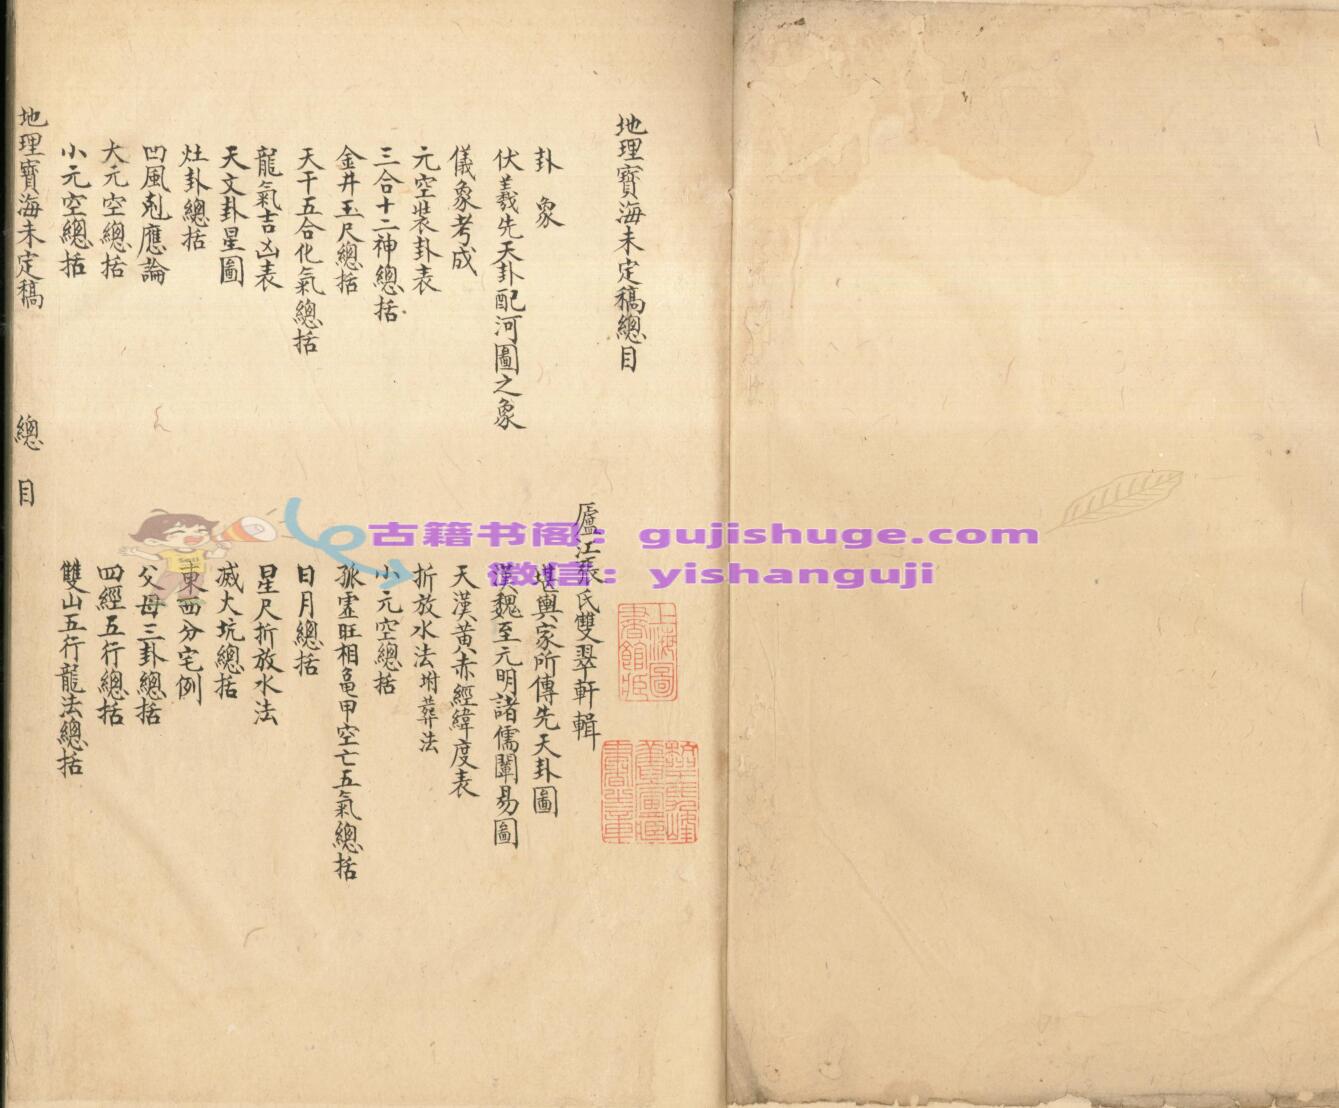 地理寶海未定稿總目
廬江張氏雙翠軒輯
卦象
堪輿家所傳先天卦圖
伏羲先天卦配河圖之象
漢魏至元明諸儒闡易圖
儀象考成
天漢黃赤經緯度表
元空裝卦表
折放水法附葬法
三合十二神總括
小元空總括
金井玉尺總括
孤虛旺相龜甲空亡五氣總括
天干五合化氣總括
日月總括
龍氣吉凶表
星尺折放水法
天文卦星圖
滅大坑總括
灶卦總括
東西分宅例
凹風剋應論
父母三卦總括
大元空總括
四經五行總括
小元空總括
雙山五行龍法總括
地理寶海未定稿 總目
上海圖書館藏
古籍书阁：gujishuge.com
微信：yishanguji